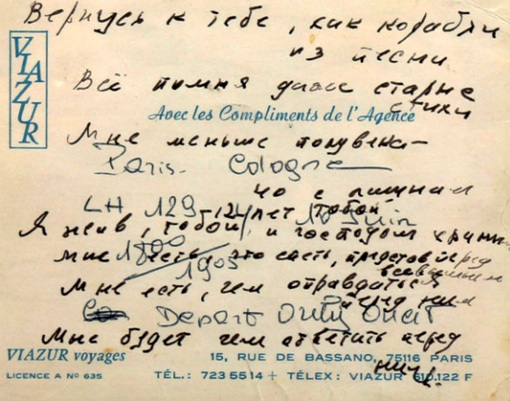 Вернусь к тебе, как корабли
из песни
VIAZUR
Всё помня даже старые
стихи
Avec les Compliments de l'Agence
Мне меньше полувека —
Paris - Cologne
но с лишним
LH 129 12 лет тобой
Juin
Я жив, тобой и господом храним
1800
мне есть, что спеть, представ перед
всевышним
1905
Мне есть, чем оправдаться
перед ним
Depart Orly Ouest
Мне будет чем ответить перед
ним.
VIAZUR voyages
15, RUE DE BASSANO, 75116 PARIS
LICENCE A Nº 635
TÉL.: 723 55 14 + TÉLEX: VIAZUR 610.122 F